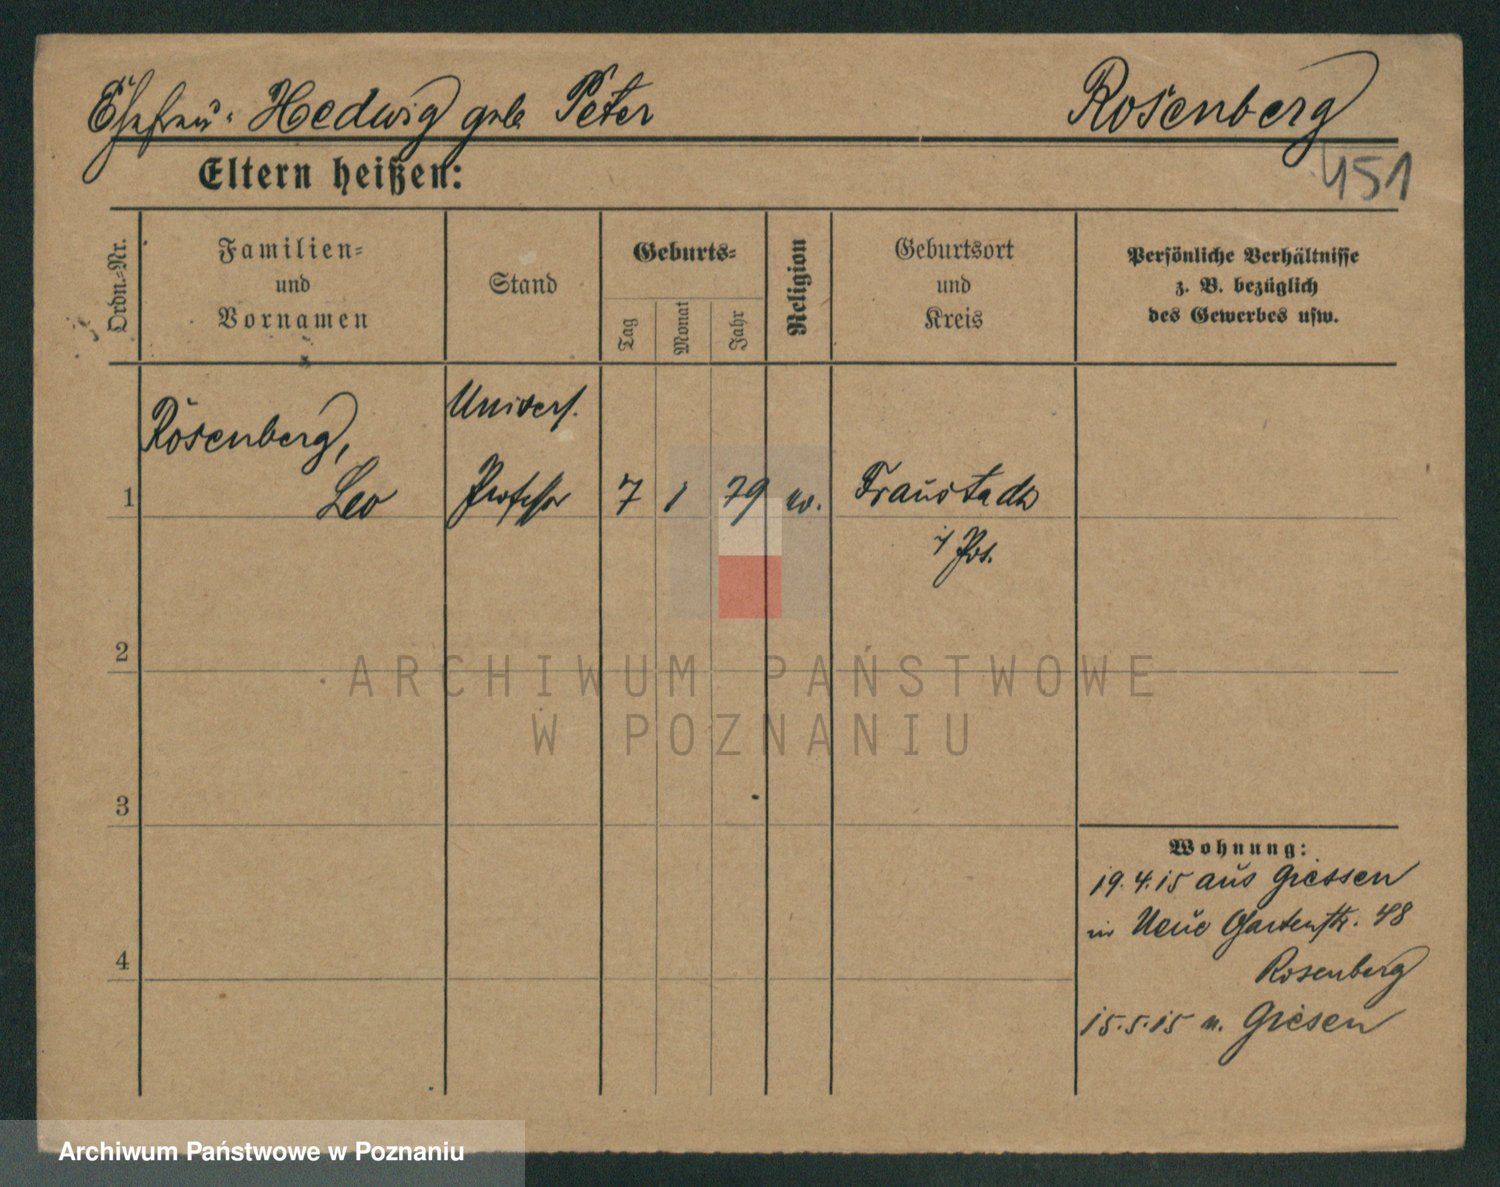 Ehefrau: Hedwig geb. Peter Rosenberg
451
Eltern heißen:
Ordn.-Nr.
Familien-
und
Vornamen
Stand
Geburts-
Tag
Monat
Jahr
Religion
Geburtsort
und
Kreis
Persönliche Verhältnisse
z. B. bezüglich
des Gewerbes usw.
Rosenberg, Univers.
1 Leo Professor 7 1 79 Fraustadt
i/ Pos.
2
3
4
Wohnung:
19.4.15 aus Giessen
in Neue Gartenstr. 48
Rosenberg
15.5.15 n. Giesen
ARCHIWUM PAŃSTWOWE
W POZNANIU
Archiwum Państwowe w Poznaniu